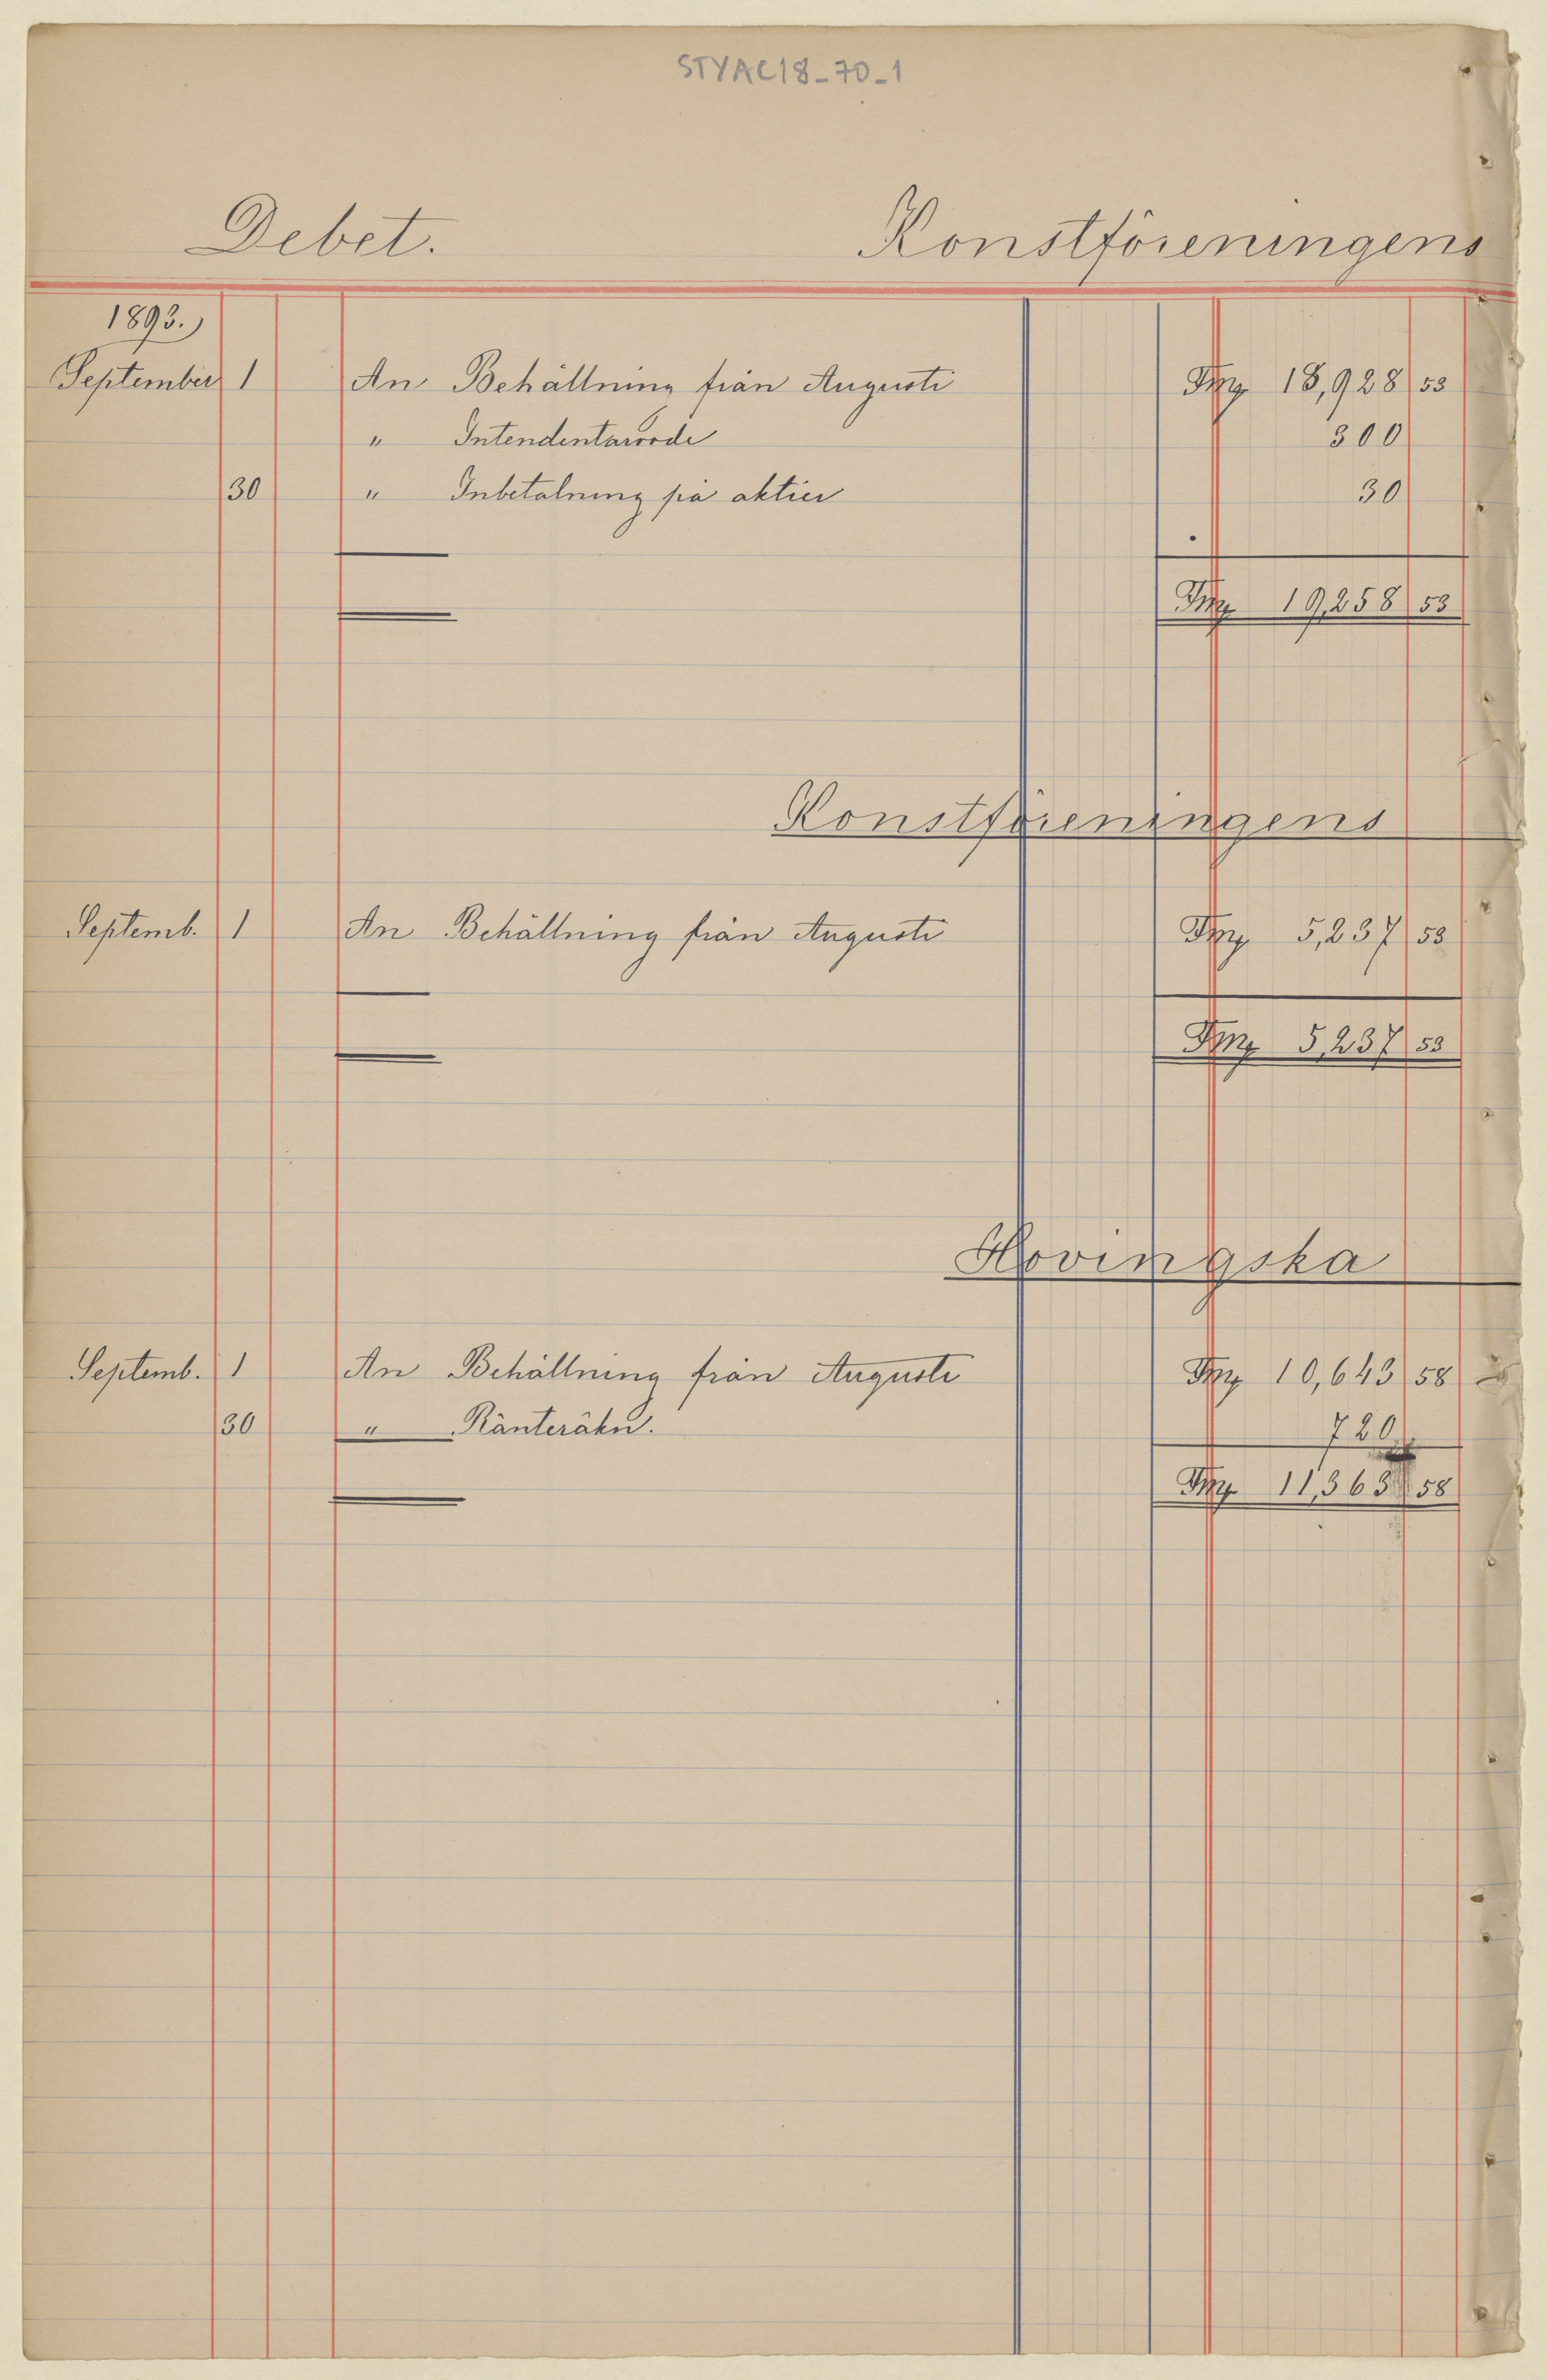 STYAC18_70_1
Debet. Konstföreningens
1893.
September 1 An Behållning från Augusti Fmg 18,928 53
" Intendentarvode 300
30 " Inbetalning på aktier 30
Fmg 19,258 53
Konstföreningens
Septemb. 1 An Behållning från Augusti Fmg 5,237 53
Fmg 5,237 53
Hovingska
Septemb. 1 An Behållning från Augusti Fmg 10,643 58
30 " Ränteräkn. 720
Fmg 11,363 58